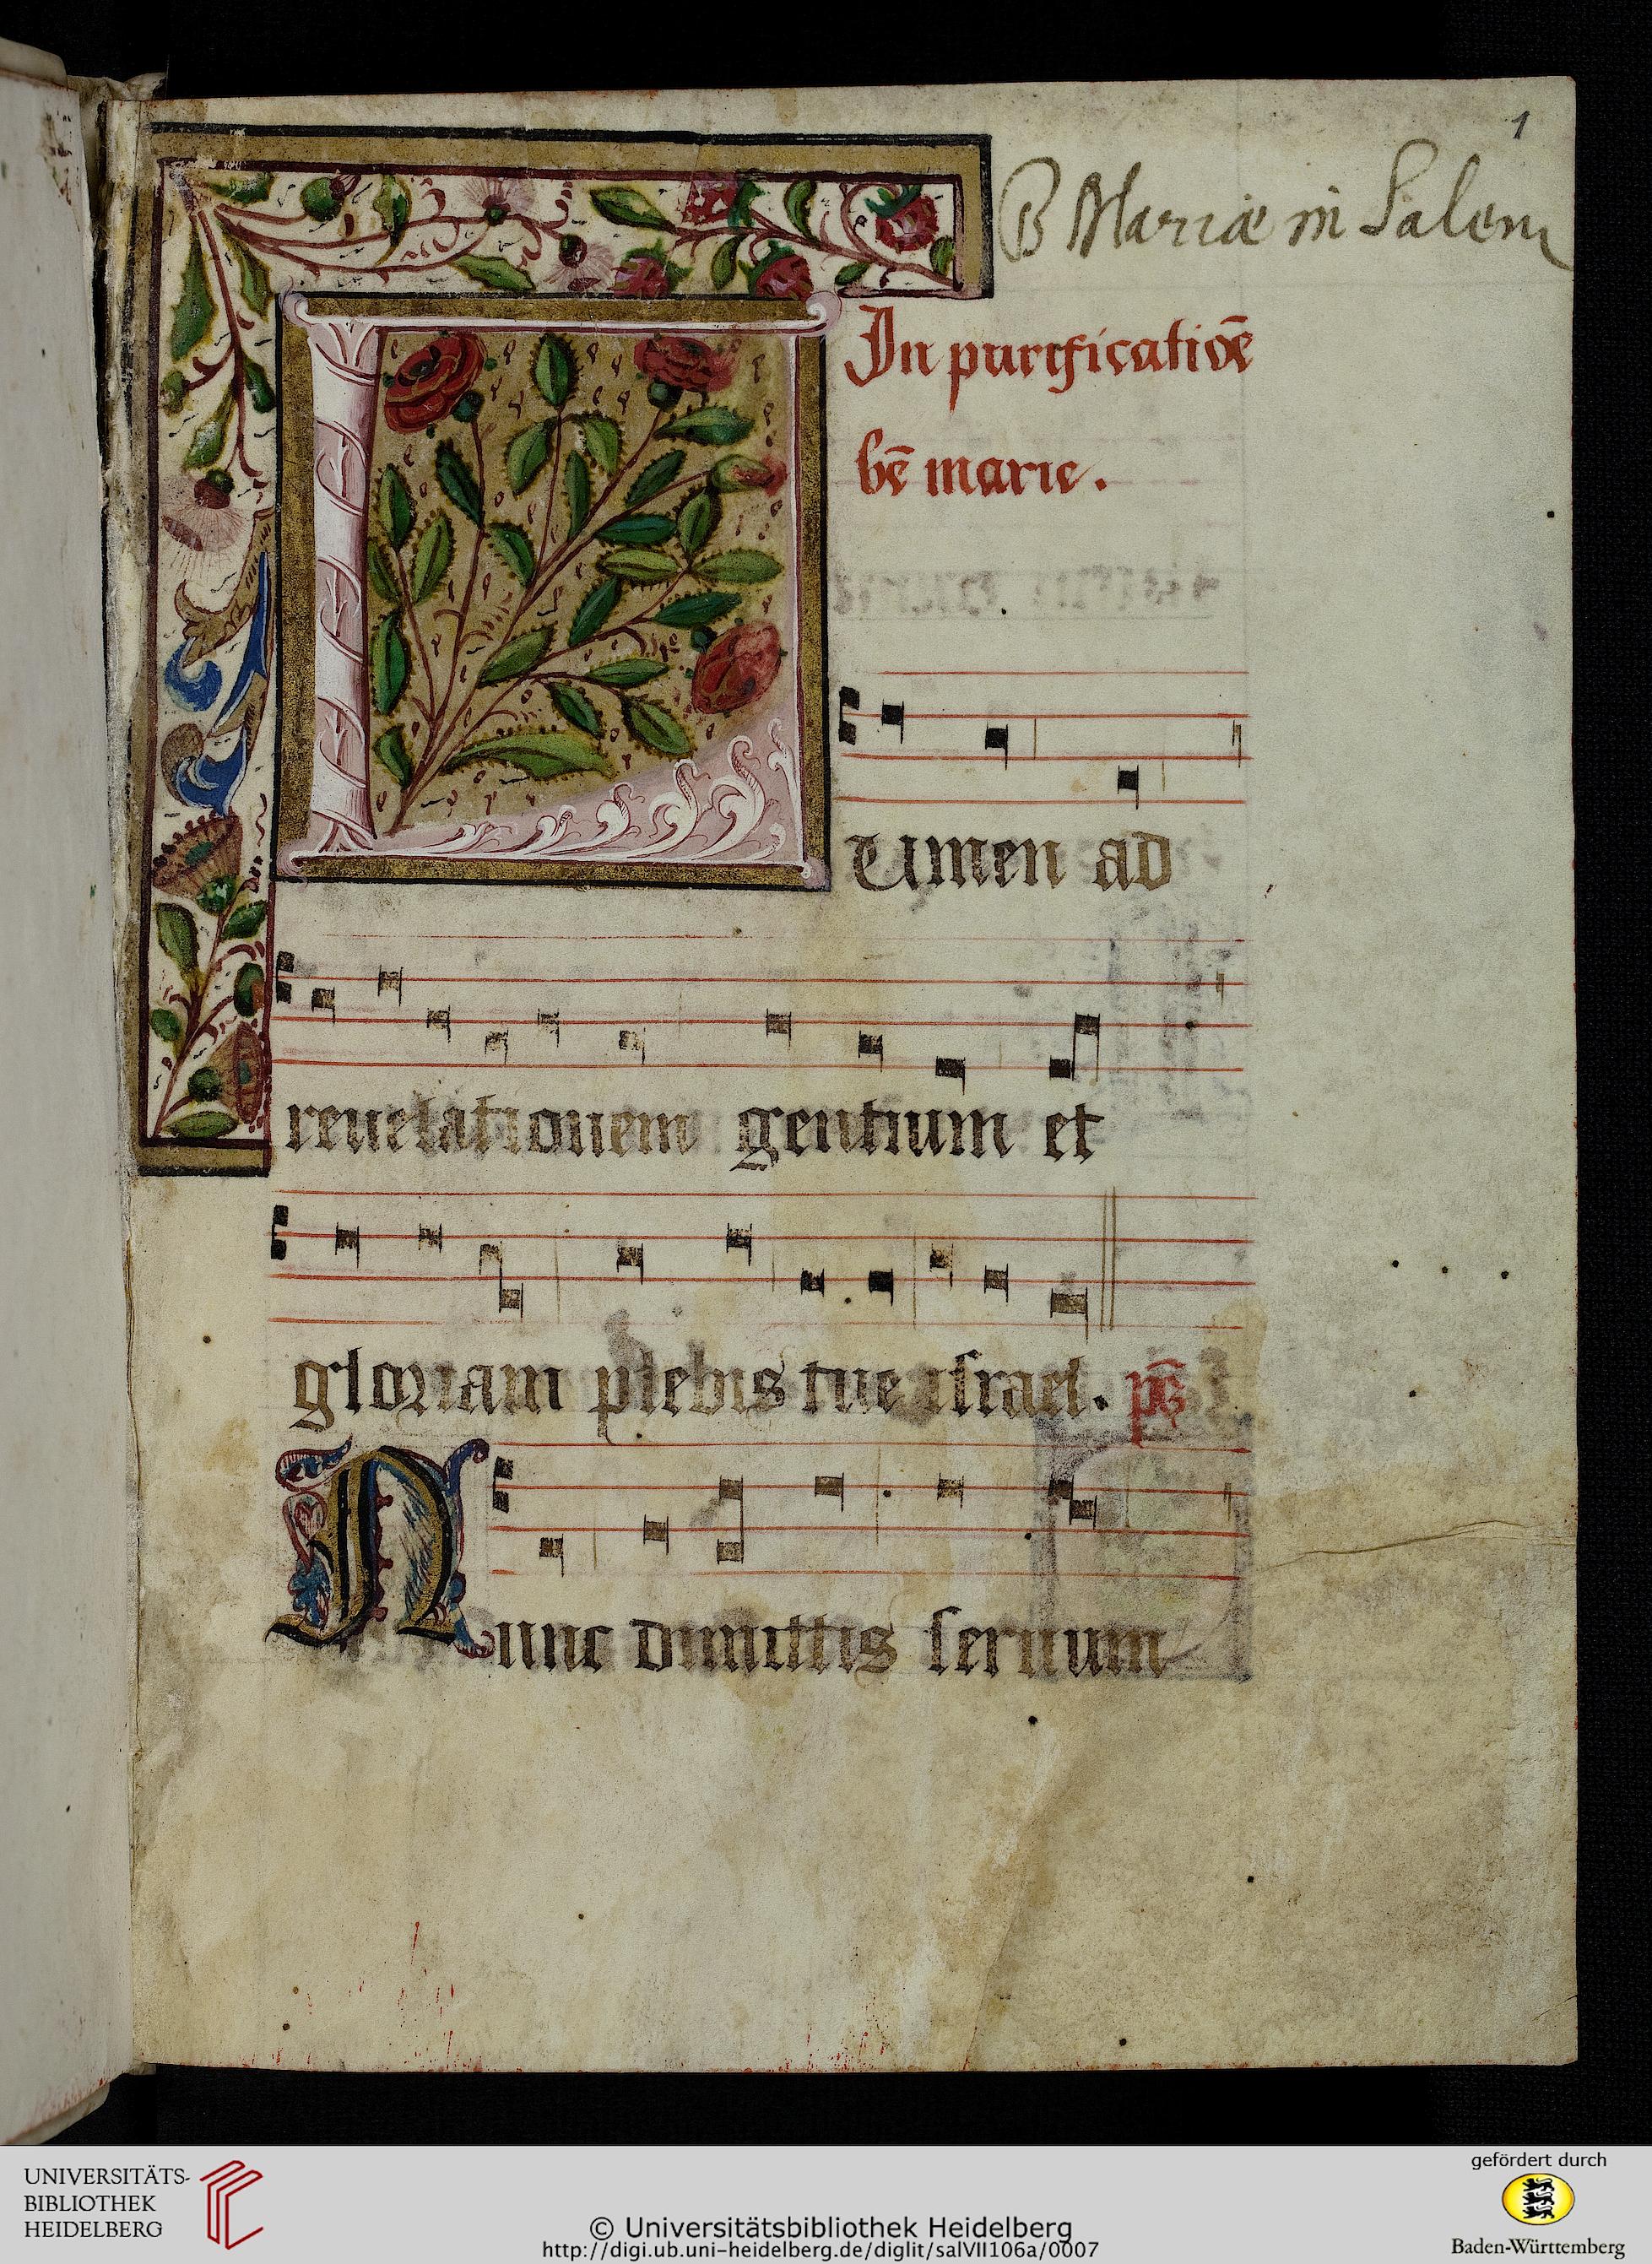 1
B Mariæ in Salem
In purificatiōe
bē marie.
LUmen ad
reuelationem gentium et
gloriam plebis tue israel. ps̄
Nunc dimittis seruum
UNIVERSITÄTS-
BIBLIOTHEK
HEIDELBERG
© Universitätsbibliothek Heidelberg
http://digi.ub.uni-heidelberg.de/diglit/salVII106a/0007
gefördert durch
Baden-Württemberg